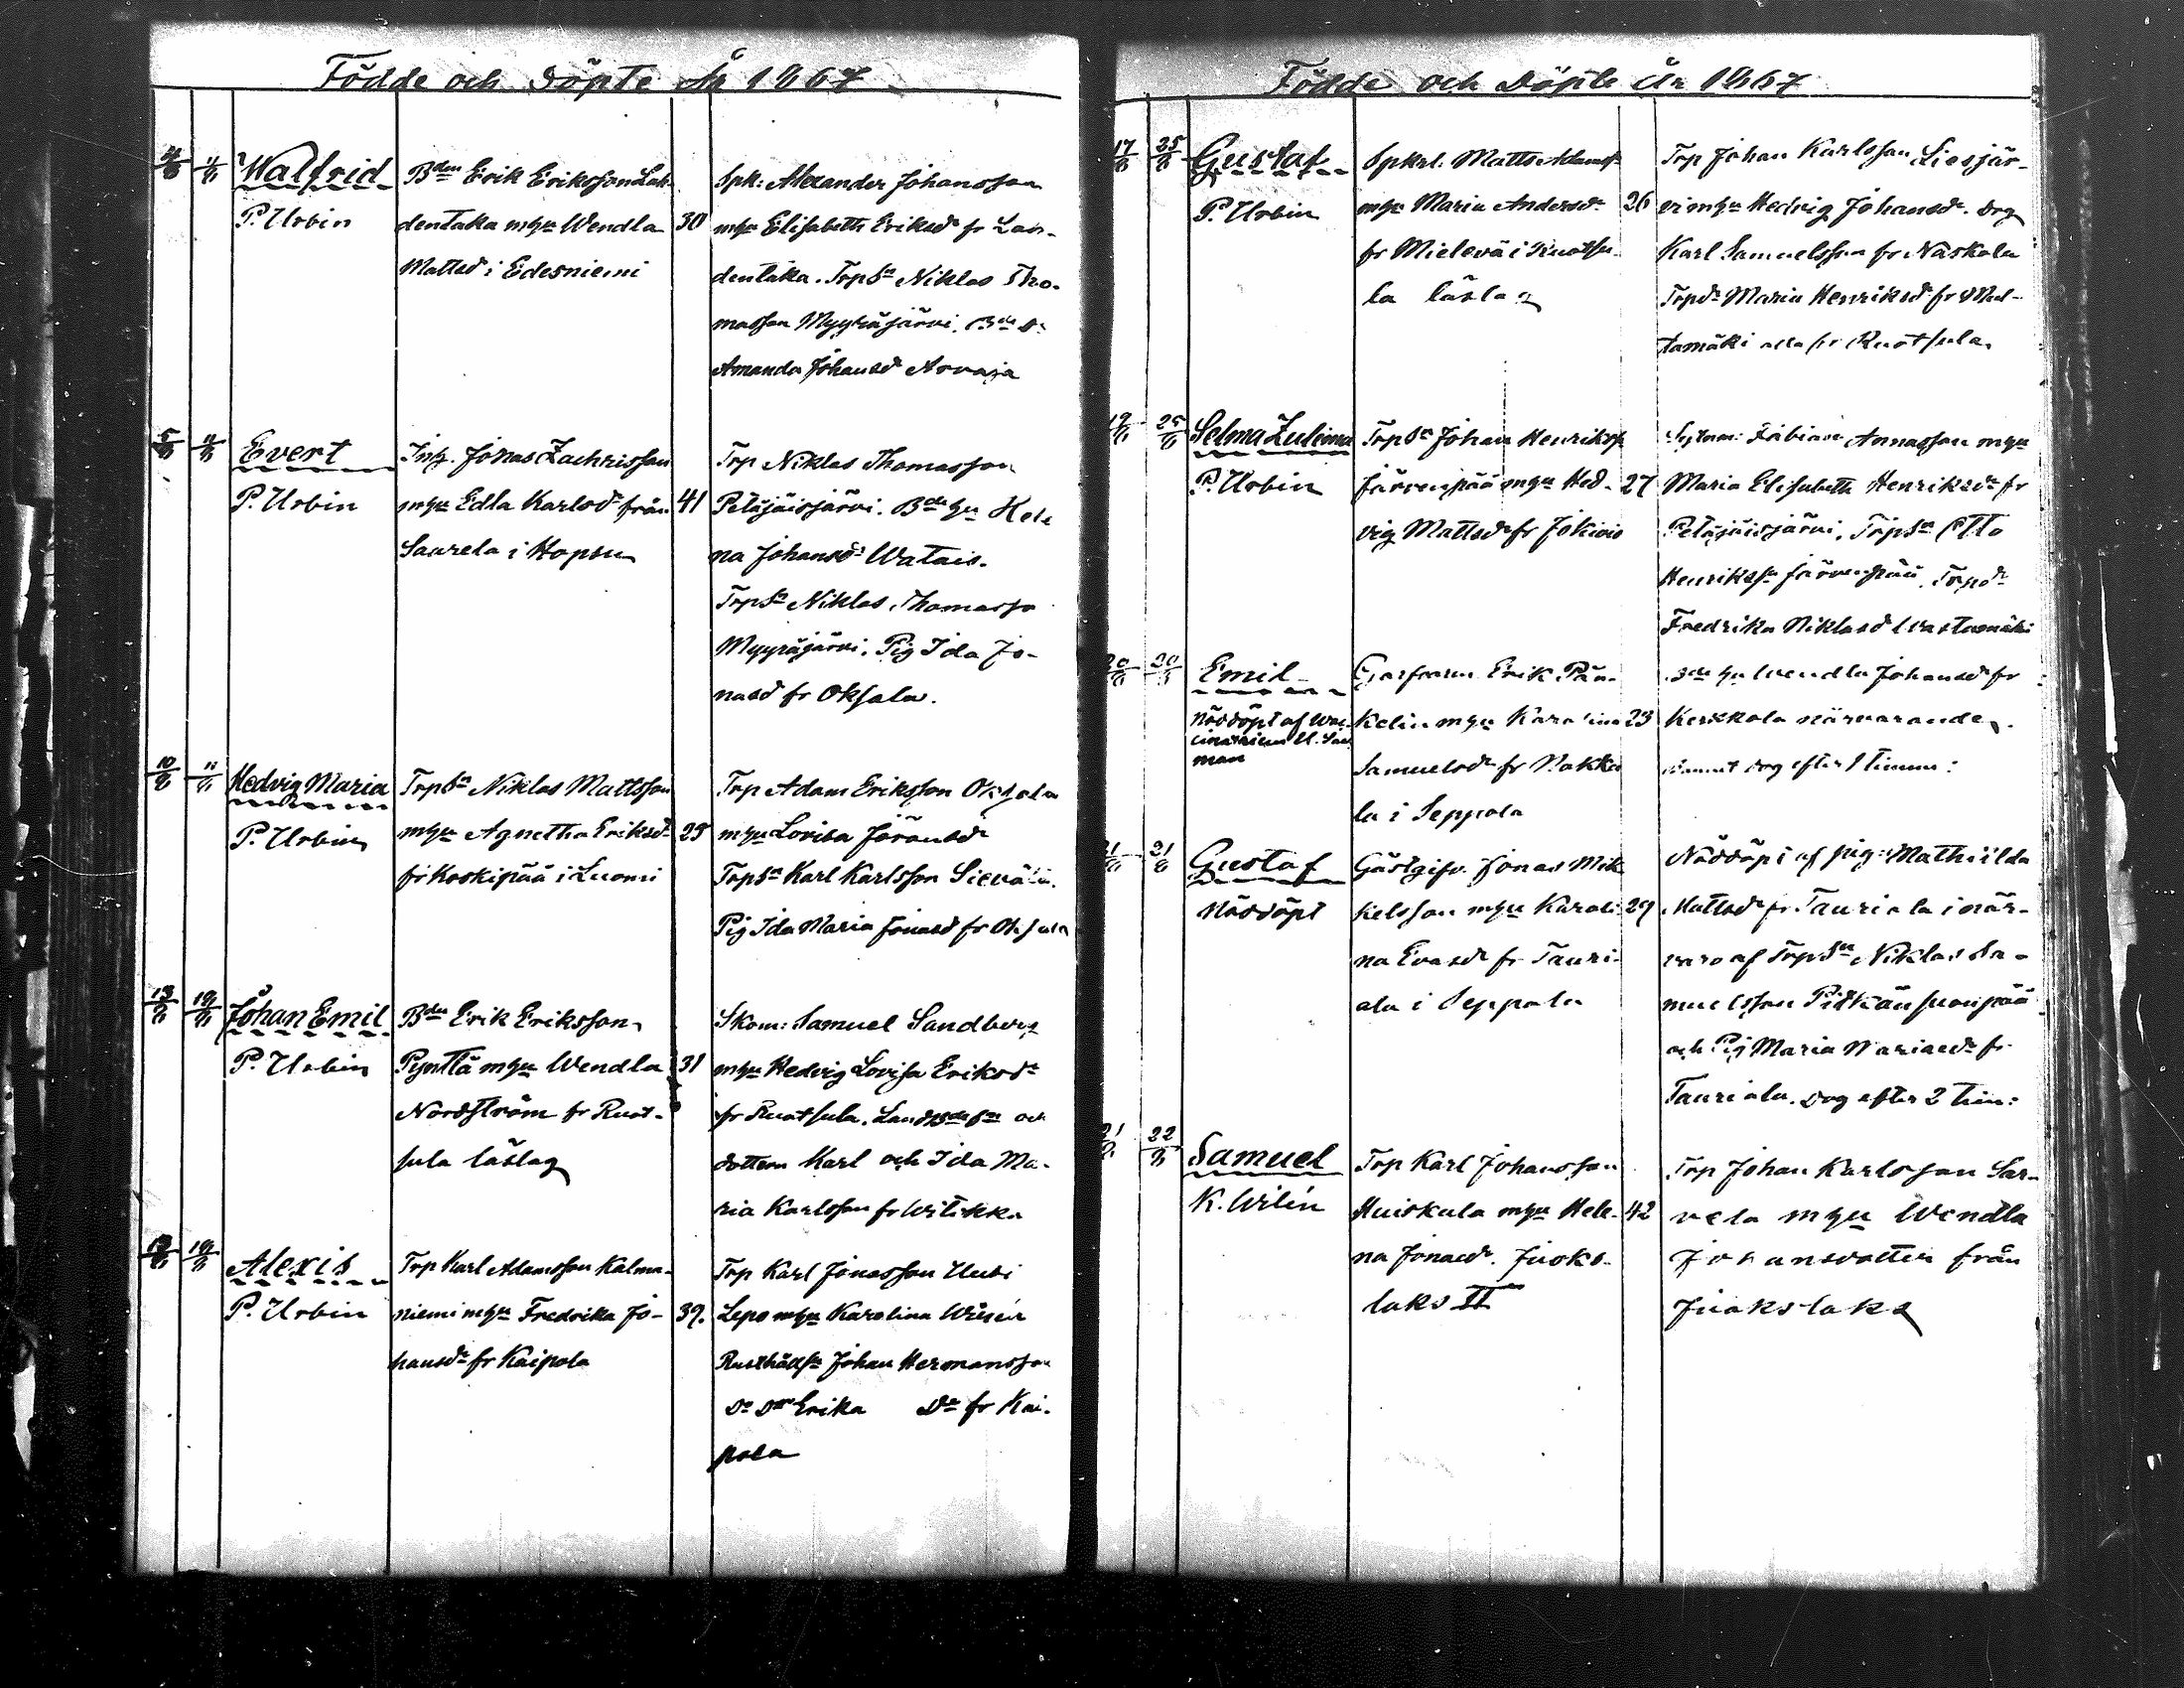 Födde och döpte År 1867
4/8 11/8 Walfrid
P. Urbin
Bden Erik Eriksson Lah-
dentaka mhu Wendla
Mattsd i Edesniemi
30
Spk: Alexander Johansson
mhu Elisabeth Eriksdr fr Lah-
dentaka. TrpSn Niklas Tho-
masson Myyräjärvi. Bde dr
Amanda Johansdr Arvaja
5/8 11/8 Evert
P. Urbin
Inh. Jonas Zachrisson
mhu Edla Karlsdr från
Saurela i Hopsu
41
Trp Niklas Thomasson
Petäjäisjärvi. Bde hu Hele
na Johansdr Watais.
TrpSn Niklas Thomasso
Myyräjärvi. Pig Ida Jo-
nasdr fr Oksala.
10/8 11/8 Hedvig Maria
P. Urbin
TrpSn Niklas Mattsson
mhu Agnetha Eriksdr
fr Koskipää i Luomi
25
Trp Adam Eriksson Oksala
mhu Lovisa Göransdr
TrpSn Karl Karlsson Sievälä.
Pig Ida Maria Jonasd fr Oksala
13/8 19/8 Johan Emil
P. Urbin
Bden Erik Eriksson
Pynttä mhu Wendla
Nordström fr Ruot-
sula läslag
31
Skom: Samuel Sandberg
mhu Hedvig Lovisa Eriksdr
fr Ruotsula. LandBde Sn och
dottern Karl och Ida Ma-
ria Karlsson fr Witikka
18/8 19/8 Alexis
P. Urbin
Trp Karl Adamsson Kalma-
niemi mhu Fredrika Jo-
hansdr fr Kaipola
39.
Trp Karl Jonasson Uusi
Lepo mhu Karolina Wilén
Rusthålls Johan Hermansson
Dr Erika Do fr Kai-
pola
Födde och döpte År 1867
17/8 25/8 Gustaf
P. Urbin
Spkrl. Matts Adamss
mhu Maria Andersdr
fr Mielevä i Ruotsu-
la läslag
26
Trp Johan Karlsson Liesjär-
vi mhu Hedvig Johansdr. Drg
Karl Samuelsson fr Naskala
Trpdr Maria Henriksdr fr Mul-
tamäki alla fr Ruotsula.
19/8 25/8 Selma Zulima
P. Urbin
TrpSn Johan Henriksso
Järvenpää mhu Hed-
vig Mattsdr fr Jokiois
27
Sytnm: Fabian Annasson mhu
Maria Elisabeth Henriksdr fr
Petäjäisjärvi. TrpSn Otto
Henrikssn Järvenpää. Trpdr
Fredrika Niklasd
20/8 20/8 Emil
Nöddöpt af Wac-
cinatricen
man
Garfvarn Erik Pän-
kelin mhu Karolina
Samuelsdr fr Nakka
la i Seppola
23
Bde hu Wendla Johansdr fr
Kerkkola närvarande.
Barnet dog efter 1 timme:
21/8 21/8 Gustaf
Nöddöpt
Gästgifv. Jonas Mik
kelsson mhu Karoli
na Evasdr fr Tauri-
ala i Seppola
29
Nöddöpt af pig: Mathilda
Mattsdr fr Tauriala i när-
varo af TrpSn Niklas Sa-
muelsson Pitkänsuonpää
och Pig Maria Mariasdr fr
Tauriala. Dog efter 2 tim:
21/8 22/8 Samuel
K. Wilén
Trp Karl Johansson
Huiskula mhu Hele-
na Jonasdr. Juoks-
laks II
42
Trp Johan Karlsson Sar-
vela mhu Wendla
Johansdotter från
Juokslaks